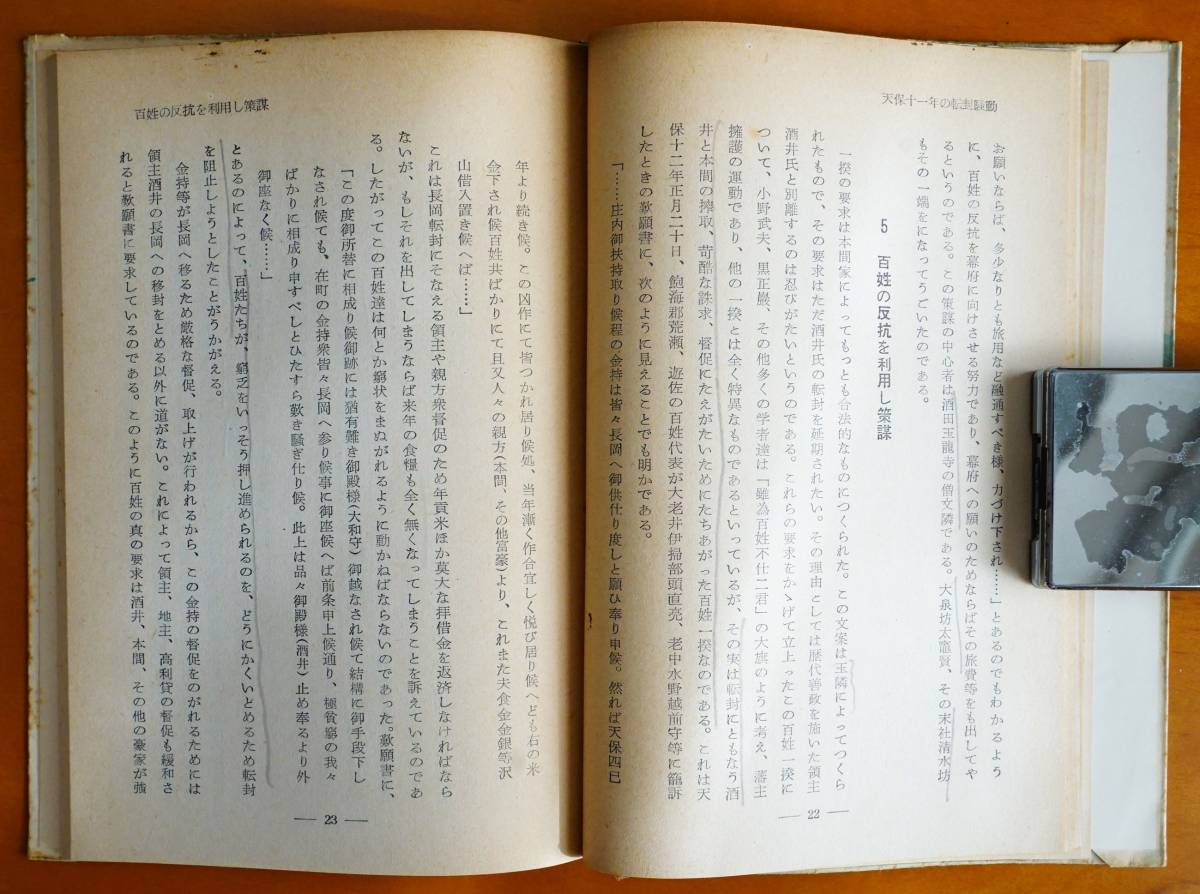 天保十一年の転封騒動
お願いならば、多少なりとも旅用など融通すべき様、力づけ下され……」とあるのでもわかるよう
に、百姓の反抗を幕府に向けさせる努力であり、幕府への願いのためならばその旅費等をも出してや
るというのである。この策謀の中心者は酒田玉龍寺の僧文隣である。大泉坊太竈賢、その末社清水坊
もその一端をになってうごいたのである。
5 百姓の反抗を利用し策謀
一揆の要求は本間家によってもっとも合法的なものにつくられた。この文案は玉隣によってつくら
れたもので、その要求はただ酒井氏の転封を延期されたい。その理由としては歴代善政を施いた領主
酒井氏と別離するのは忍びがたいというのである。これらの要求をかゝげて立上ったこの百姓一揆に
ついて、小野武夫、黒正巌、その他多くの学者達は「雖為百姓不仕二君」の大旗のように考え、藩主
擁護の運動であり、他の一揆とは全く特異なものであるといっているが、その実は転封にともなう酒
井と本間の搾取、苛酷な誅求、督促にたえがたいためにたちあがった百姓一揆なのである。これは天
保十二年正月二十日、飽海郡荒瀬、遊佐の百姓代表が大老井伊掃部頭直亮、老中水野越前守等に籠訴
したときの歎願書に、次のように見えることでも明かである。
「……庄内御扶持取り候程の金持は皆々長岡へ御供仕り度しと願ひ奉り申候。然れば天保四巳
― 22 ―
百姓の反抗を利用し策謀
年より続き候。この凶作にて皆つかれ居り候処、当年漸く作合宜しく悦び居り候へども右の米
金下され候百姓共ばかりにて且又人々の親方(本間、その他富豪)より、これまた夫食金金銀等沢
山借入置き候へば……」
これは長岡転封にそなえる領主や親方衆督促のため年貢米ほか莫大な拝借金を返済しなければなら
ないが、もしそれを出してしまうならば来年の食糧も全く無くなってしまうことを訴えているのであ
る。したがってこの百姓達は何とか窮状をまぬがれるように動かねばならないのであった。歎願書に、
「この度御所替に相成り候御跡には猶有難き御殿様(大和守)御越なされ候て結構に御手段下し
なされ候ても、在町の金持衆皆々長岡へ参り候事に御座候へば前条申上候通り、極貧窮の我々
ばかりに相成り申すべしとひたすら歎き騒ぎ仕り候。此上は品々御殿様(酒井)止め奉るより外
御座なく候……」
とあるのによって、百姓たちが、窮乏をいっそう押し進められるのを、どうにかくいとめるため転封
を阻止しようとしたことがうかがえる。
金持等が長岡へ移るため厳格な督促、取上げが行われるから、この金持の督促をのがれるためには
領主酒井の長岡への移封をとめる以外に道がない。これによって領主、地主、高利貸の督促も緩和さ
れると歎願書に要求しているのである。このように百姓の真の要求は酒井、本間、その他の豪家が強
― 23 ―